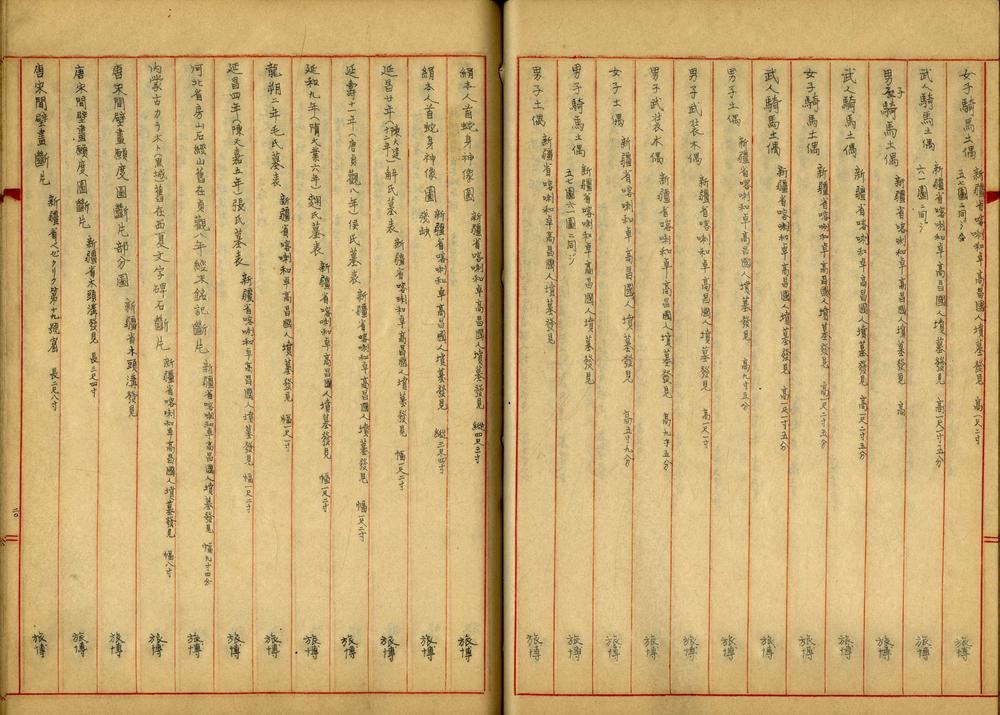 女子騎馬土偶 新疆省喀喇和卓高昌國人墳墓發見 高一尺二寸
五七圖ニ同シ
武人騎馬土偶 新疆省喀喇和卓高昌國人墳墓發見 高一尺二寸五分
六一圖ニ同シ
男子騎馬土偶 新疆省喀喇和卓高昌國人墳墓發見 高
武人騎馬土偶 新疆省喀喇和卓高昌國人墳墓發見 高一尺二寸五分
女子騎馬土偶 新疆省喀喇和卓高昌國人墳墓發見 高一尺二寸五分
武人騎馬土偶 新疆省喀喇和卓高昌國人墳墓發見 高一尺一寸五分
男子土偶 新疆省喀喇和卓高昌國人墳墓發見 高九寸五分
男子武裝木偶 新疆省喀喇和卓高昌國人墳墓發見 高一尺一寸
男子武裝木偶 新疆省喀喇和卓高昌國人墳墓發見 高九寸五分
五七圖六一圖ニ同シ
女子土偶 新疆省喀喇和卓高昌國人墳墓發見 高五寸九分
男子騎馬土偶 新疆省喀喇和卓高昌國人墳墓發見
五七圖六一圖ニ同シ
男子土偶 新疆省喀喇和卓高昌國人墳墓發見
旅博 旅博 旅博 旅博 旅博 旅博 旅博 旅博 旅博 旅博 旅博 旅博
絹本人首蛇身神像圖 新疆省喀喇和卓高昌國人墳墓發見 縱四尺三寸 旅博
絹本人首蛇身神像圖 殘缺 新疆省喀喇和卓高昌國人墳墓發見 縱三尺四寸 旅博
延昌廿年(陳大建十二年)解氏墓表 新疆省喀喇和卓高昌國人墳墓發見 幅一尺二寸 旅博
延壽十一年(唐貞觀八年)侯氏墓表 新疆省喀喇和卓高昌國人墳墓發見 幅一尺二寸 旅博
延和九年(隋大業六年)趙氏墓表 新疆省喀喇和卓高昌國人墳墓發見 幅一尺二寸 旅博
龍朔二年毛氏墓表 新疆省喀喇和卓高昌國人墳墓發見 幅一尺一寸 旅博
延昌四年(陳天嘉五年)張氏墓表 新疆省喀喇和卓高昌國人墳墓發見 幅一尺二寸 旅博
河北省房山石經山舊在貞觀八年經末銘記斷片 新疆省喀喇和卓高昌國人墳墓發見 幅九寸四分 旅博
內蒙古カラホト(黑城舊在西夏文字碑石斷片 新疆省喀喇和卓高昌國人墳墓發見 幅八寸 旅博
唐宋間壁畫願度圖斷片部分圖 新疆省木頭溝發見 旅博
唐宋間壁畫願度圖斷片 新疆省木頭溝發見 長三尺四寸 旅博
唐宋間壁畫斷片 新疆省ベゼクリク第十九號窟 長二尺八寸 旅博
二〇